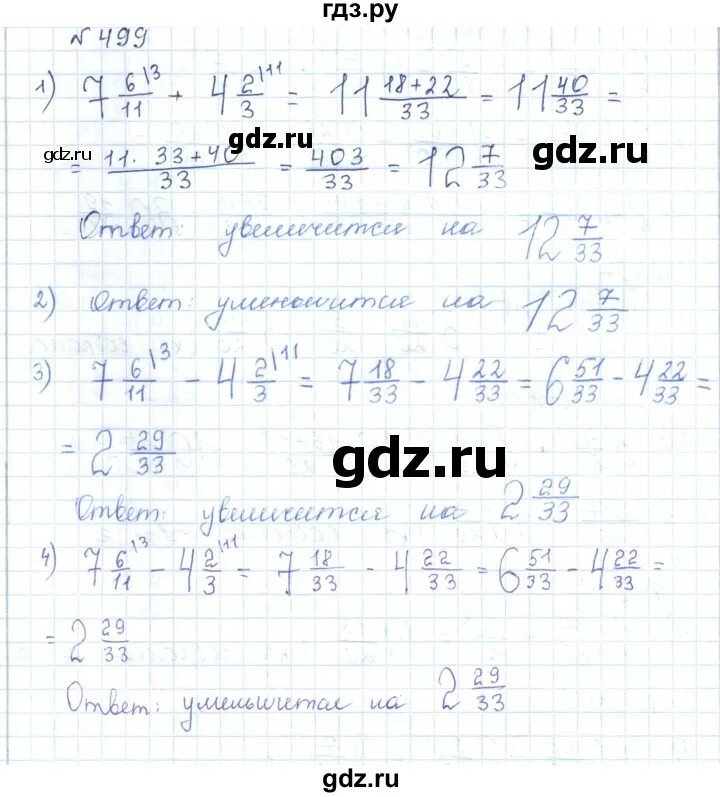 гдз.ру
№ 499
1) 7 6/11 \3 + 4 2/3 |11 = 11 (18+22)/33 = 11 40/33 =
gdz.ru
gdz.ru
= (11. 33+40)/33 = 403/33 = 12 7/33
Ответ: увеличится на 12 7/33
2) Ответ: уменьшится на 12 7/33
3) 7 6/11 \3 - 4 2/3 \11 = 7 18/33 - 4 22/33 = 6 51/33 - 4 22/33 =
= 2 29/33
gdz.ru
Ответ: увеличится на 2 29/33
4) 7 6/11 \3 - 4 2/3 \11 = 7 18/33 - 4 22/33 = 6 51/33 - 4 22/33 =
= 2 29/33
Ответ: уменьшится на 2 29/33
gdz.ru
gdz.ru